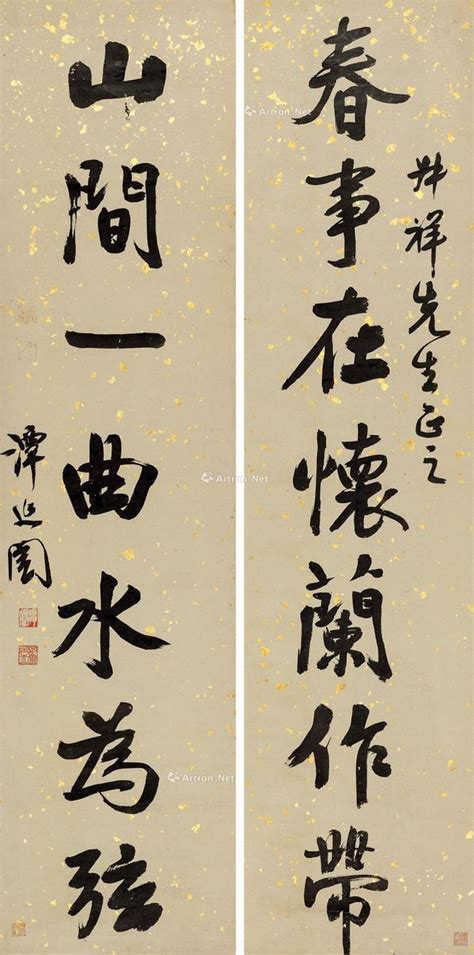 春事在懷蘭作帶
祥先生正之
山間一曲水為弦
譚延闓
Artron.Net
Artron.Net
Artron.Net
Artron.Net